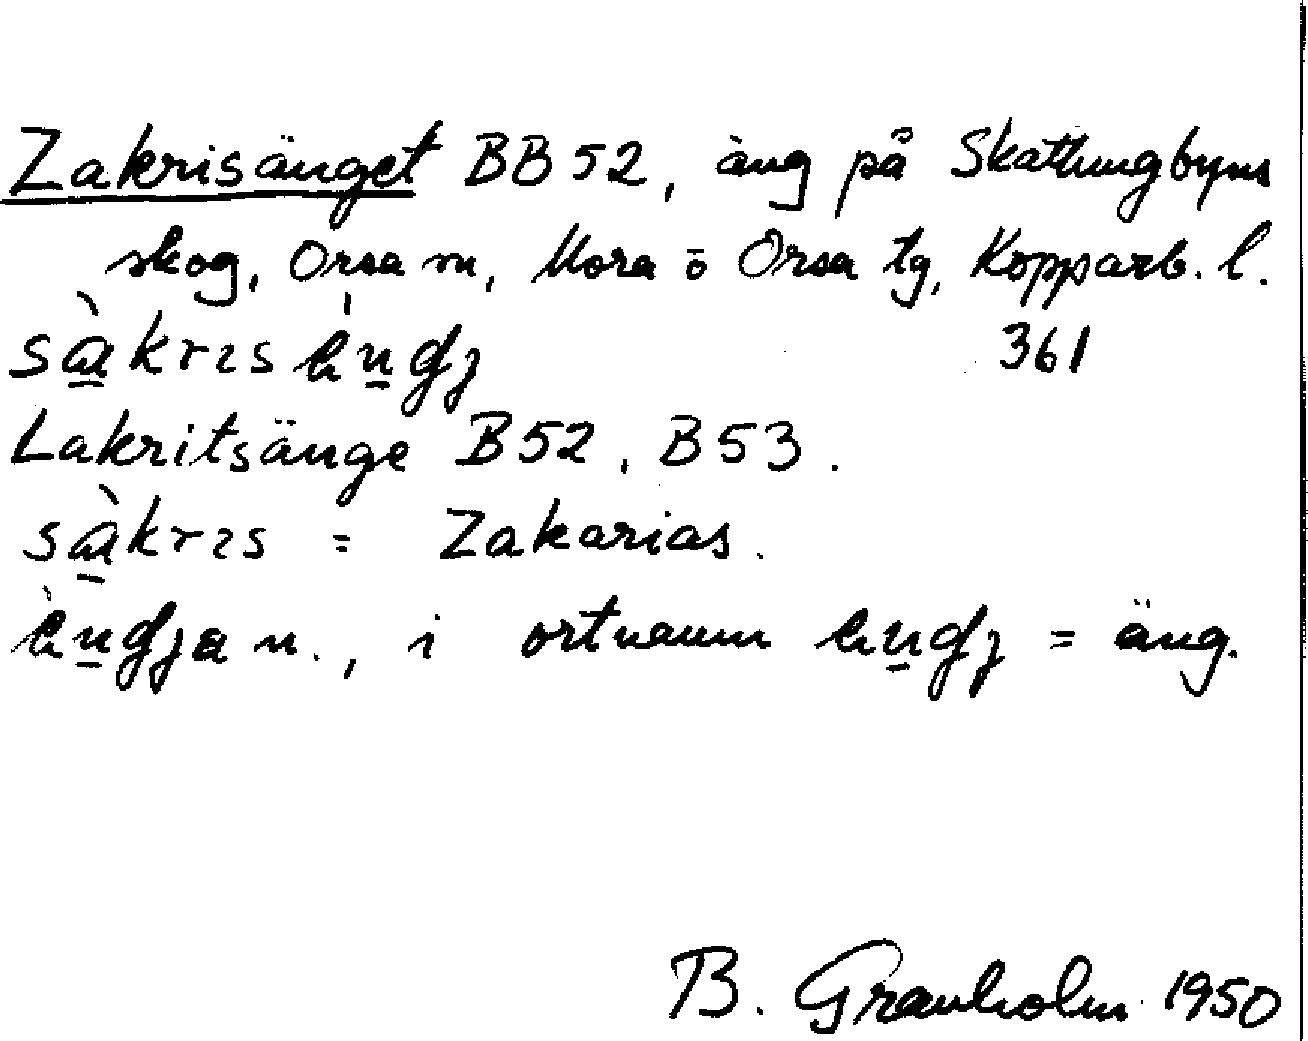 Zakrisänget BB52, äng på Skattungbyns
skog, Orsa sn, Mora o Orsa tg, Kopparb. l.
361
Lakritsänge B52, B53.
= Zakarias.
n., i ortnamn = äng.
B. Granholm 1950